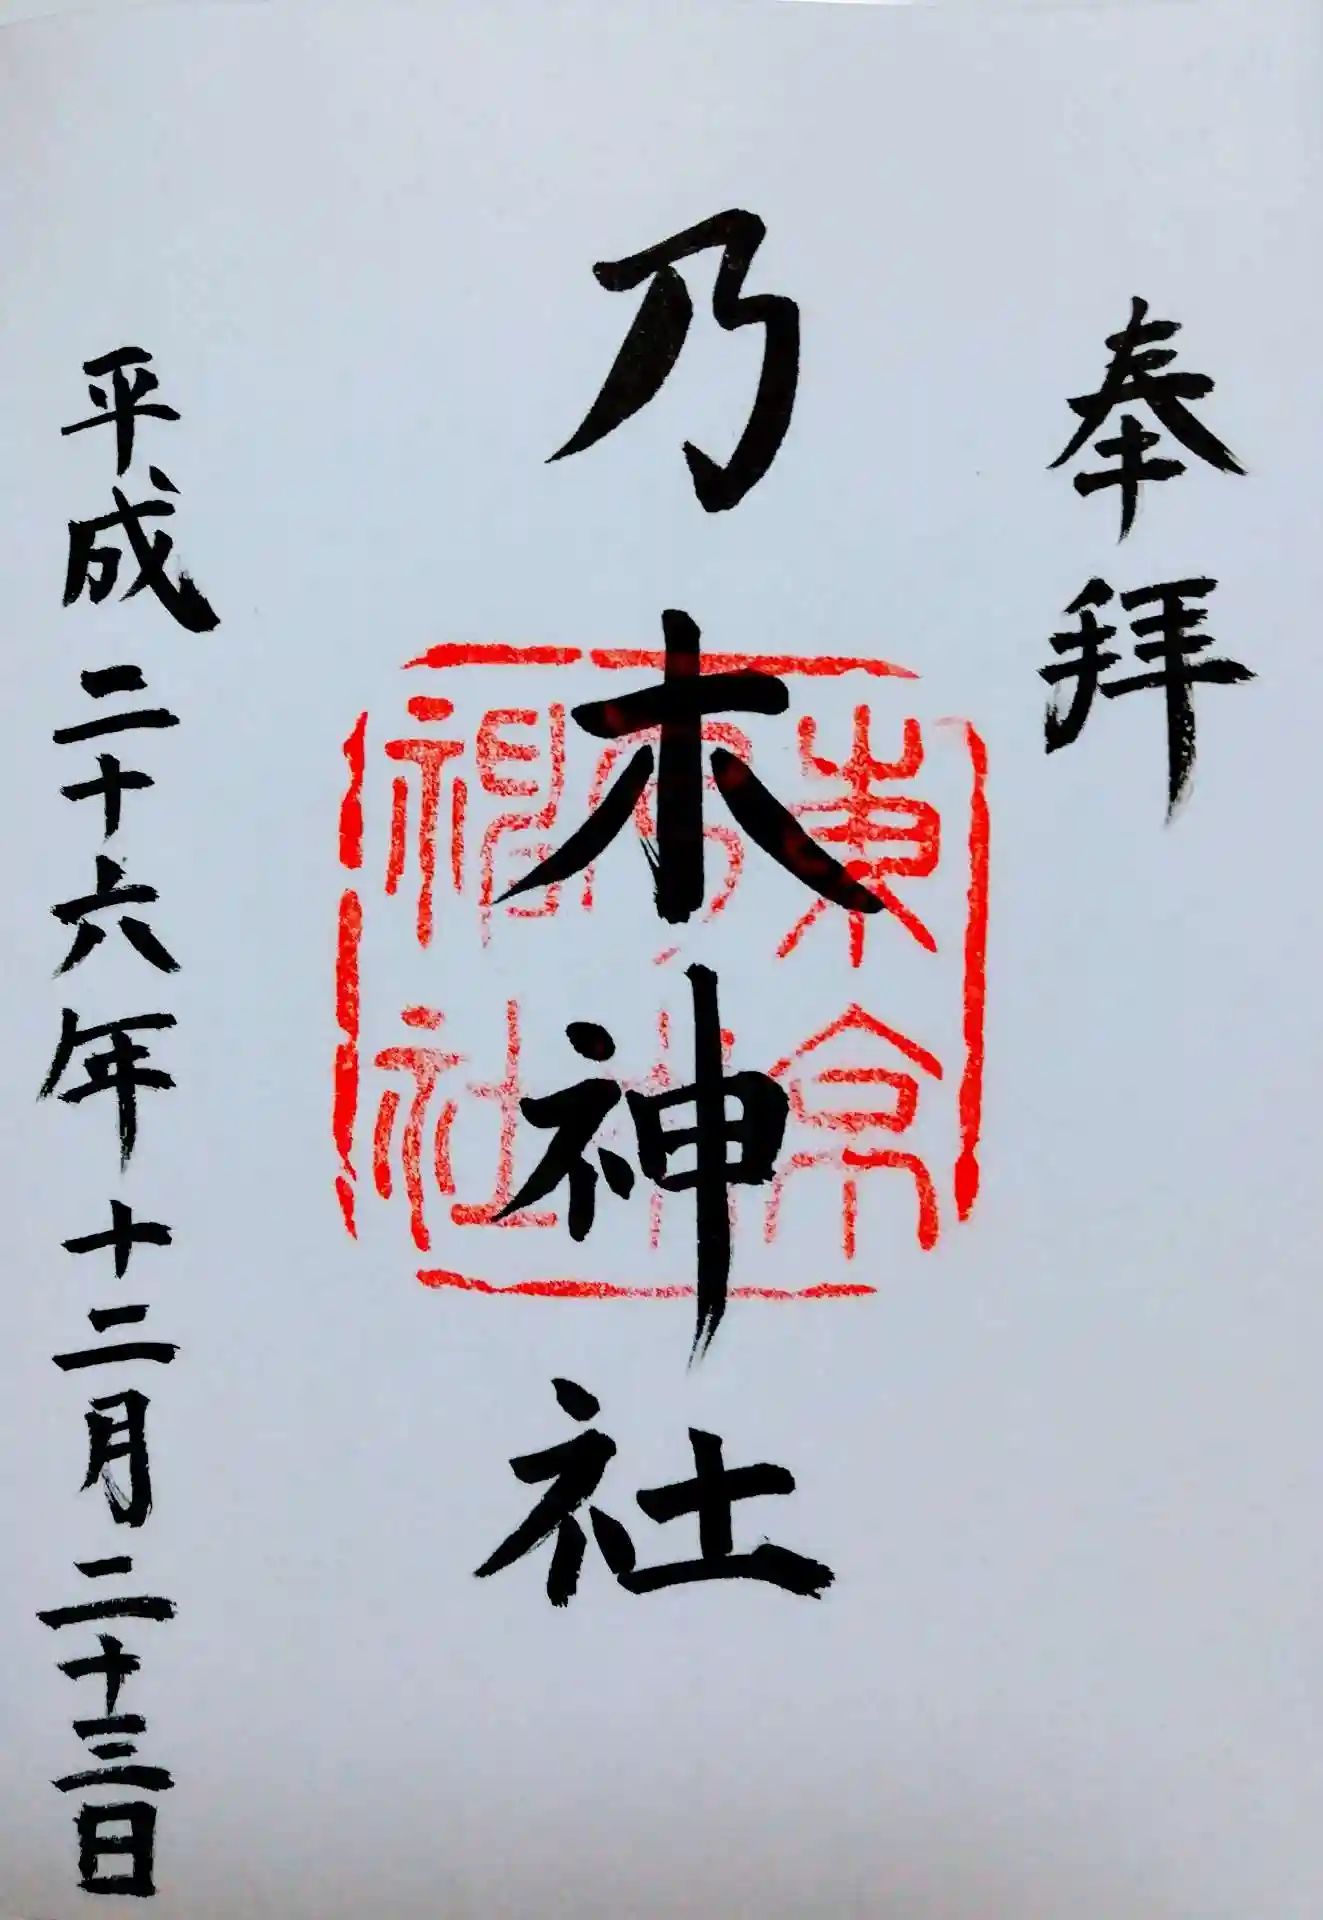 奉拝
乃木神社
東京
乃木
神社
平成二十六年十二月二十三日